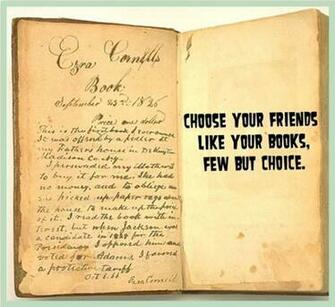 Ezra Cornell's
Book
September 23rd 1826
Price one dollar
This is the first book I ever owned
It was offered by a pedler at
my Father's house in DeRuyter
Madison Co. N.Y.
I persuaded my Mother
to buy it for me. She had
no money, and to oblige me
she picked up paper rags about
the house to make up the price
of it. I read the book with in-
terest, but when Jackson was
a candidate in 1828 for the
Presidency I opposed him and
voted for Adams. I favored
a protective tariff
Ezra Cornell
CHOOSE YOUR FRIENDS
LIKE YOUR BOOKS,
FEW BUT CHOICE.